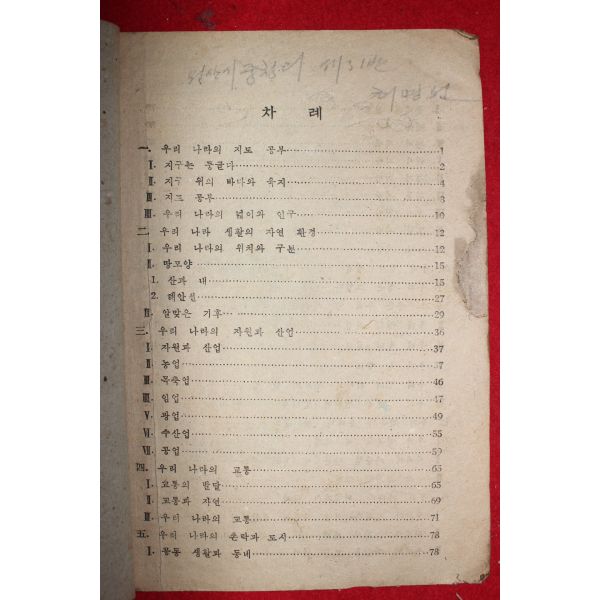 차 례
一. 우리 나라의 지도 공부 1
Ⅰ. 지구는 둥글다 2
Ⅱ. 지구 위의 바다와 육지 4
Ⅱ. 지도 공부 8
Ⅲ. 우리 나라의 넓이와 인구 10
二. 우리 나라 생활의 자연 환경 12
Ⅰ. 우리 나라의 위치와 구분 12
Ⅱ. 땅모양 15
1. 산과 내 15
2. 해안선 27
Ⅱ. 알맞은 기후 29
三. 우리 나라의 자원과 산업 36
Ⅰ. 자원과 산업 37
Ⅱ. 농업 37
Ⅲ. 목축업 46
Ⅲ. 임업 47
Ⅴ. 광업 49
Ⅵ. 수산업 55
Ⅶ. 공업 59
四. 우리 나라의 교통 65
Ⅰ. 교통의 발달 65
Ⅰ. 교통과 자연 69
Ⅱ. 우리 나라의 교통 71
五. 우리 나라의 촌락과 도시 78
Ⅰ. 공동 생활과 동네 78